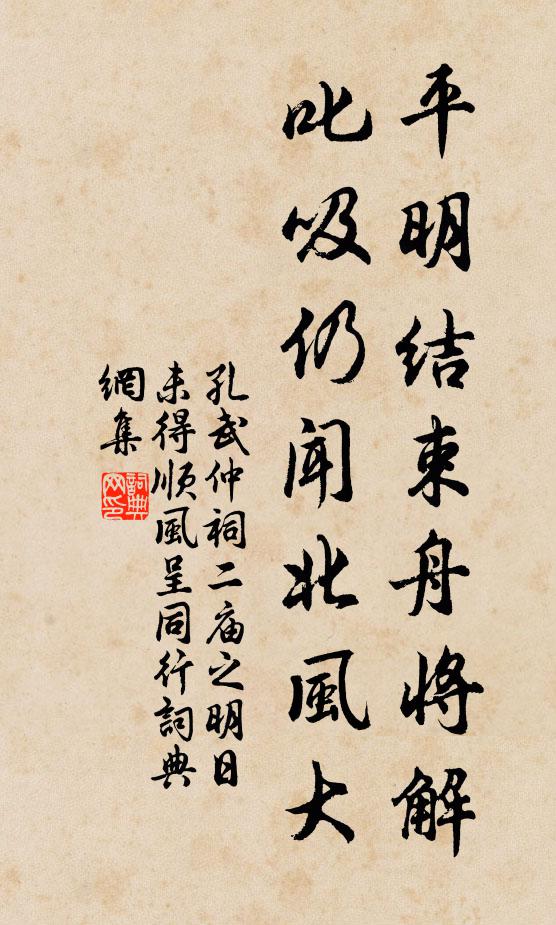 平明結束舟將解
叱吸仍聞北風大
孔武仲祠二庙之明日
未得順風呈同行詞典
網集
詞典
网印